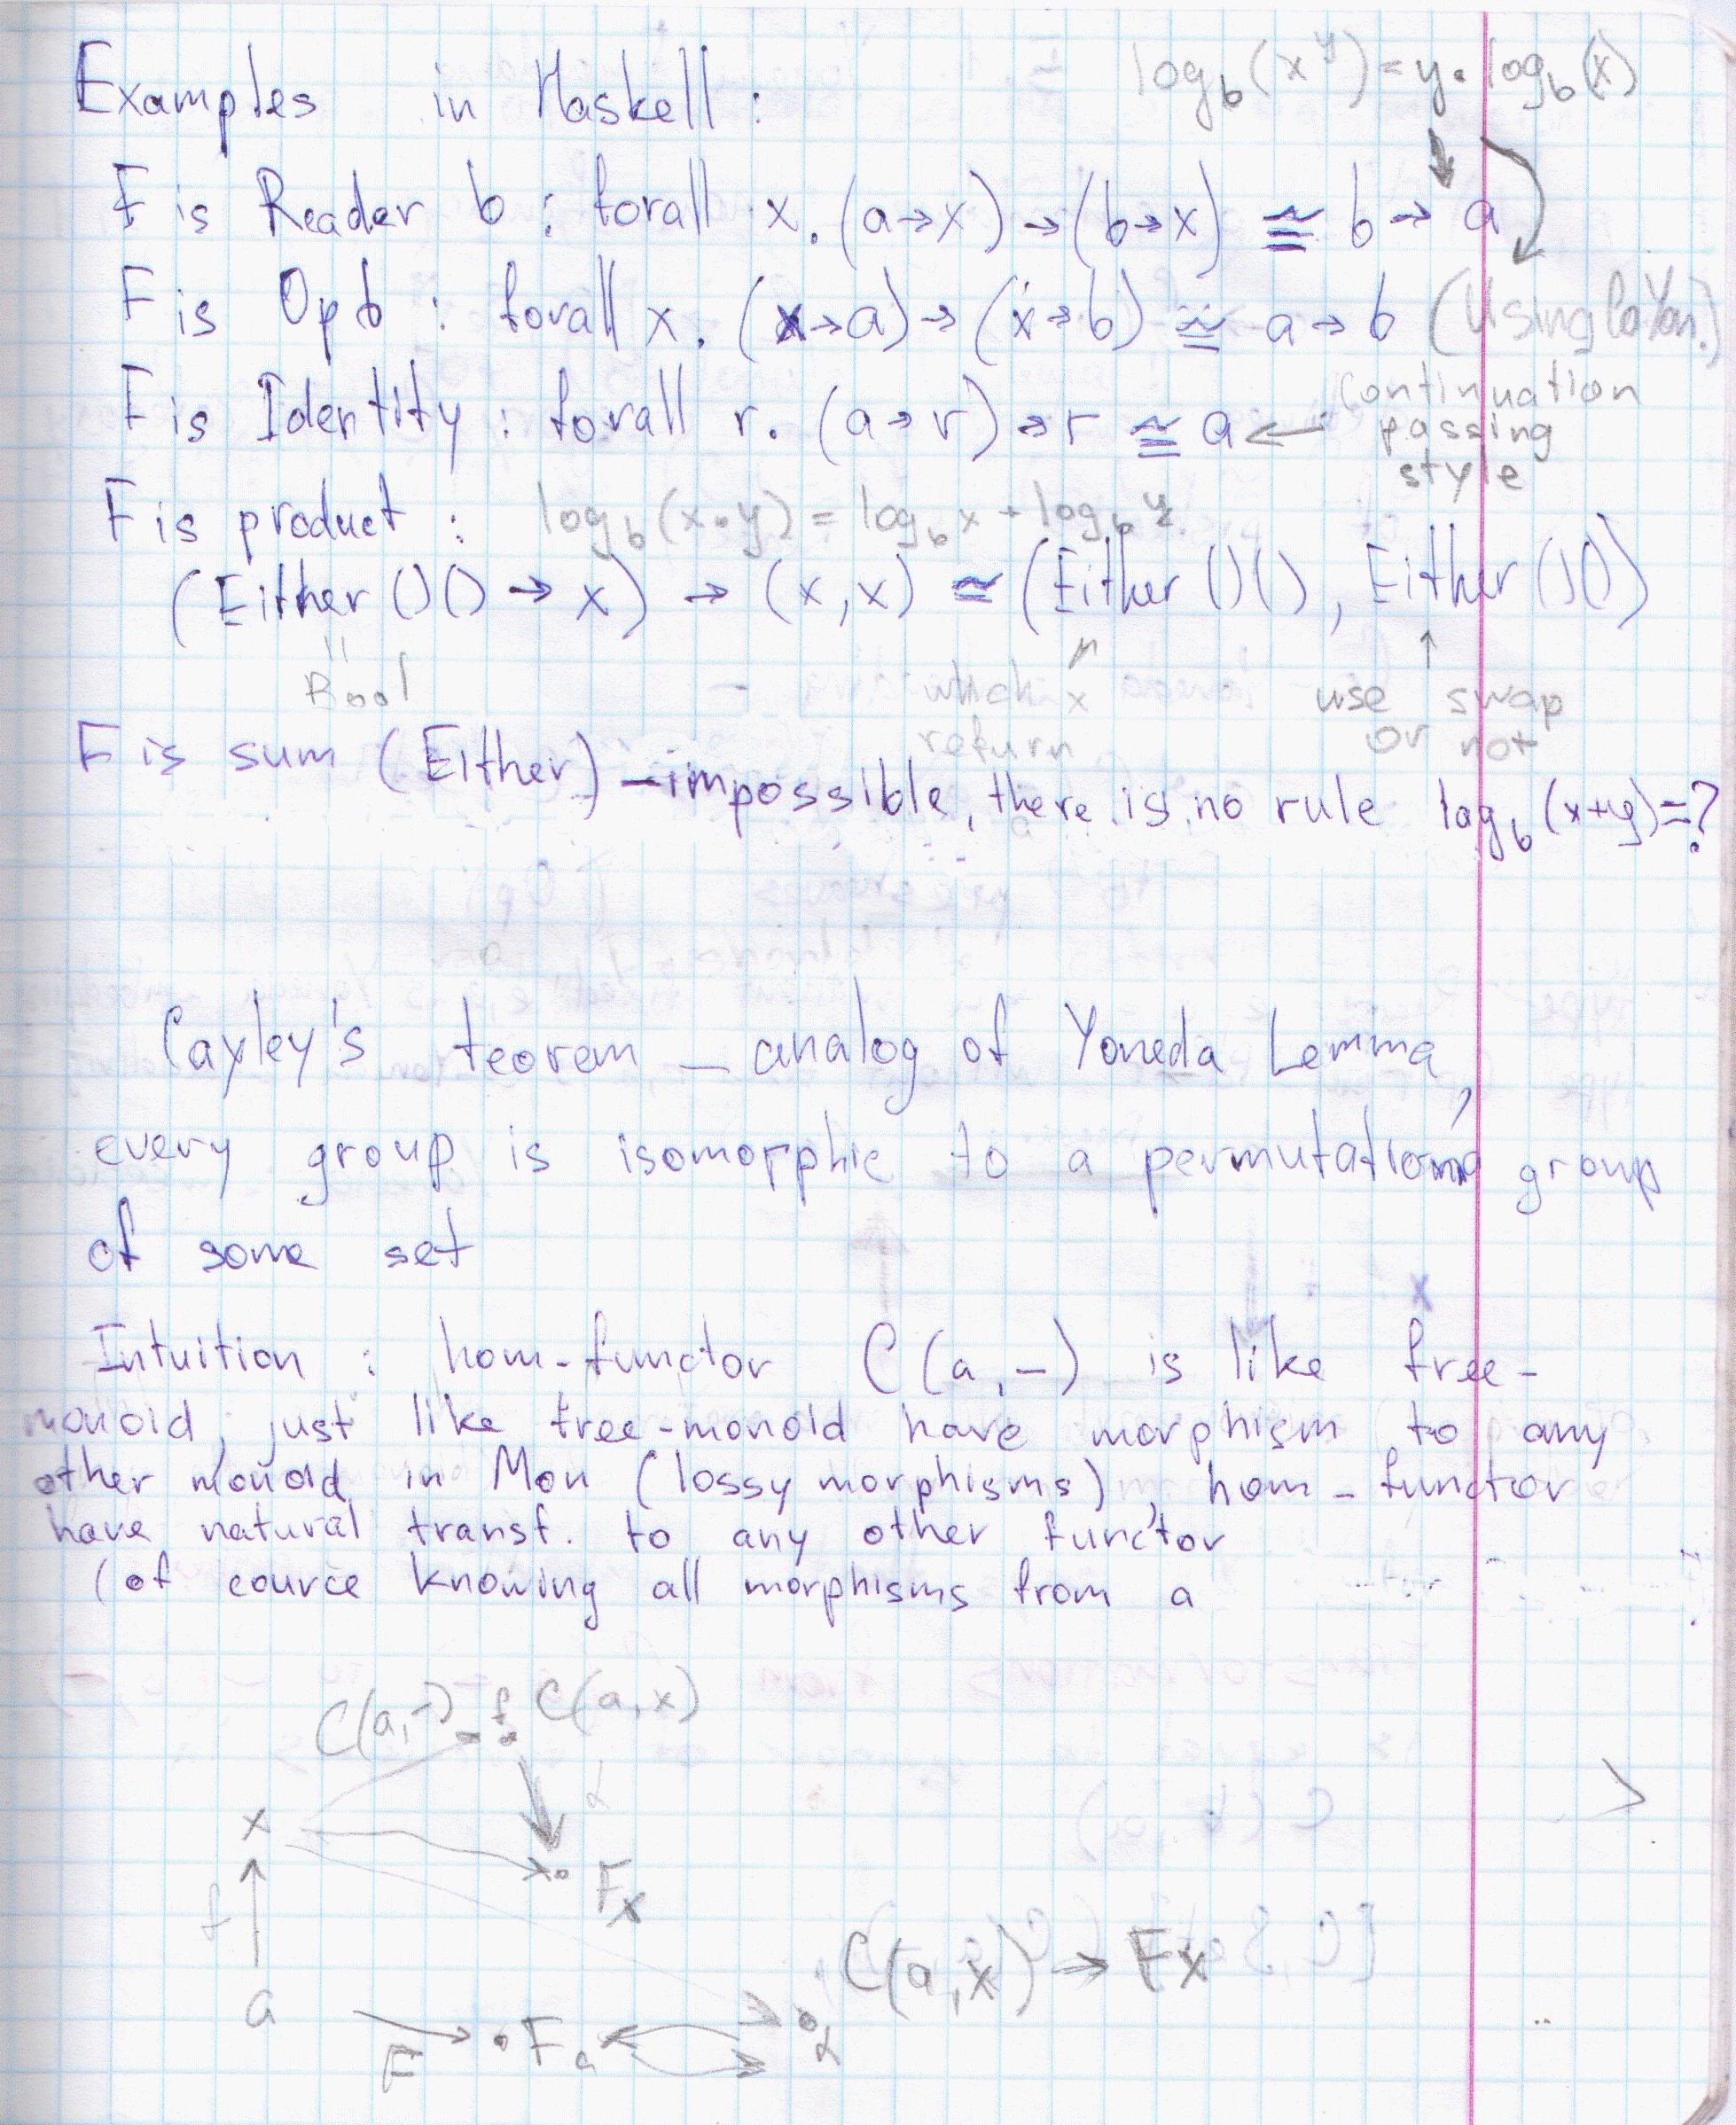 log_b(x^y) = y · log_b(x)
Examples in Haskell :
F is Reader b : forall x. (a→x) → (b→x) ≅ b → a
F is Op b : forall x. (x→a) → (x→b) ≅ a → b (Using CoYon.)
F is Identity : forall r. (a→r) → r ≅ a ← continuation
passing
style
F is product : log_b(x·y) = log_b x + log_b y
(Either ()() → x) → (x,x) ≅ (Either ()(), Either ()())
"
Bool
which x
return
↑
use swap
or not
F is sum (Either) – impossible, there is no rule log_b (x+y)=?
Cayley's teorem – analog of Yoneda Lemma,
every group is isomorphic to a permutation group
of some set
x
Intuition : hom-functor C(a,–) is like free-
monoid, just like free-monoid have morphism to any
other monoid in Mon (lossy morphisms), hom-functor
have natural transf. to any other functor
(of cource knowing all morphisms from a
C(a,-) f C(a,x)
α
x
Fx
f
a
F
Fa
α
C(a,x) → Fx